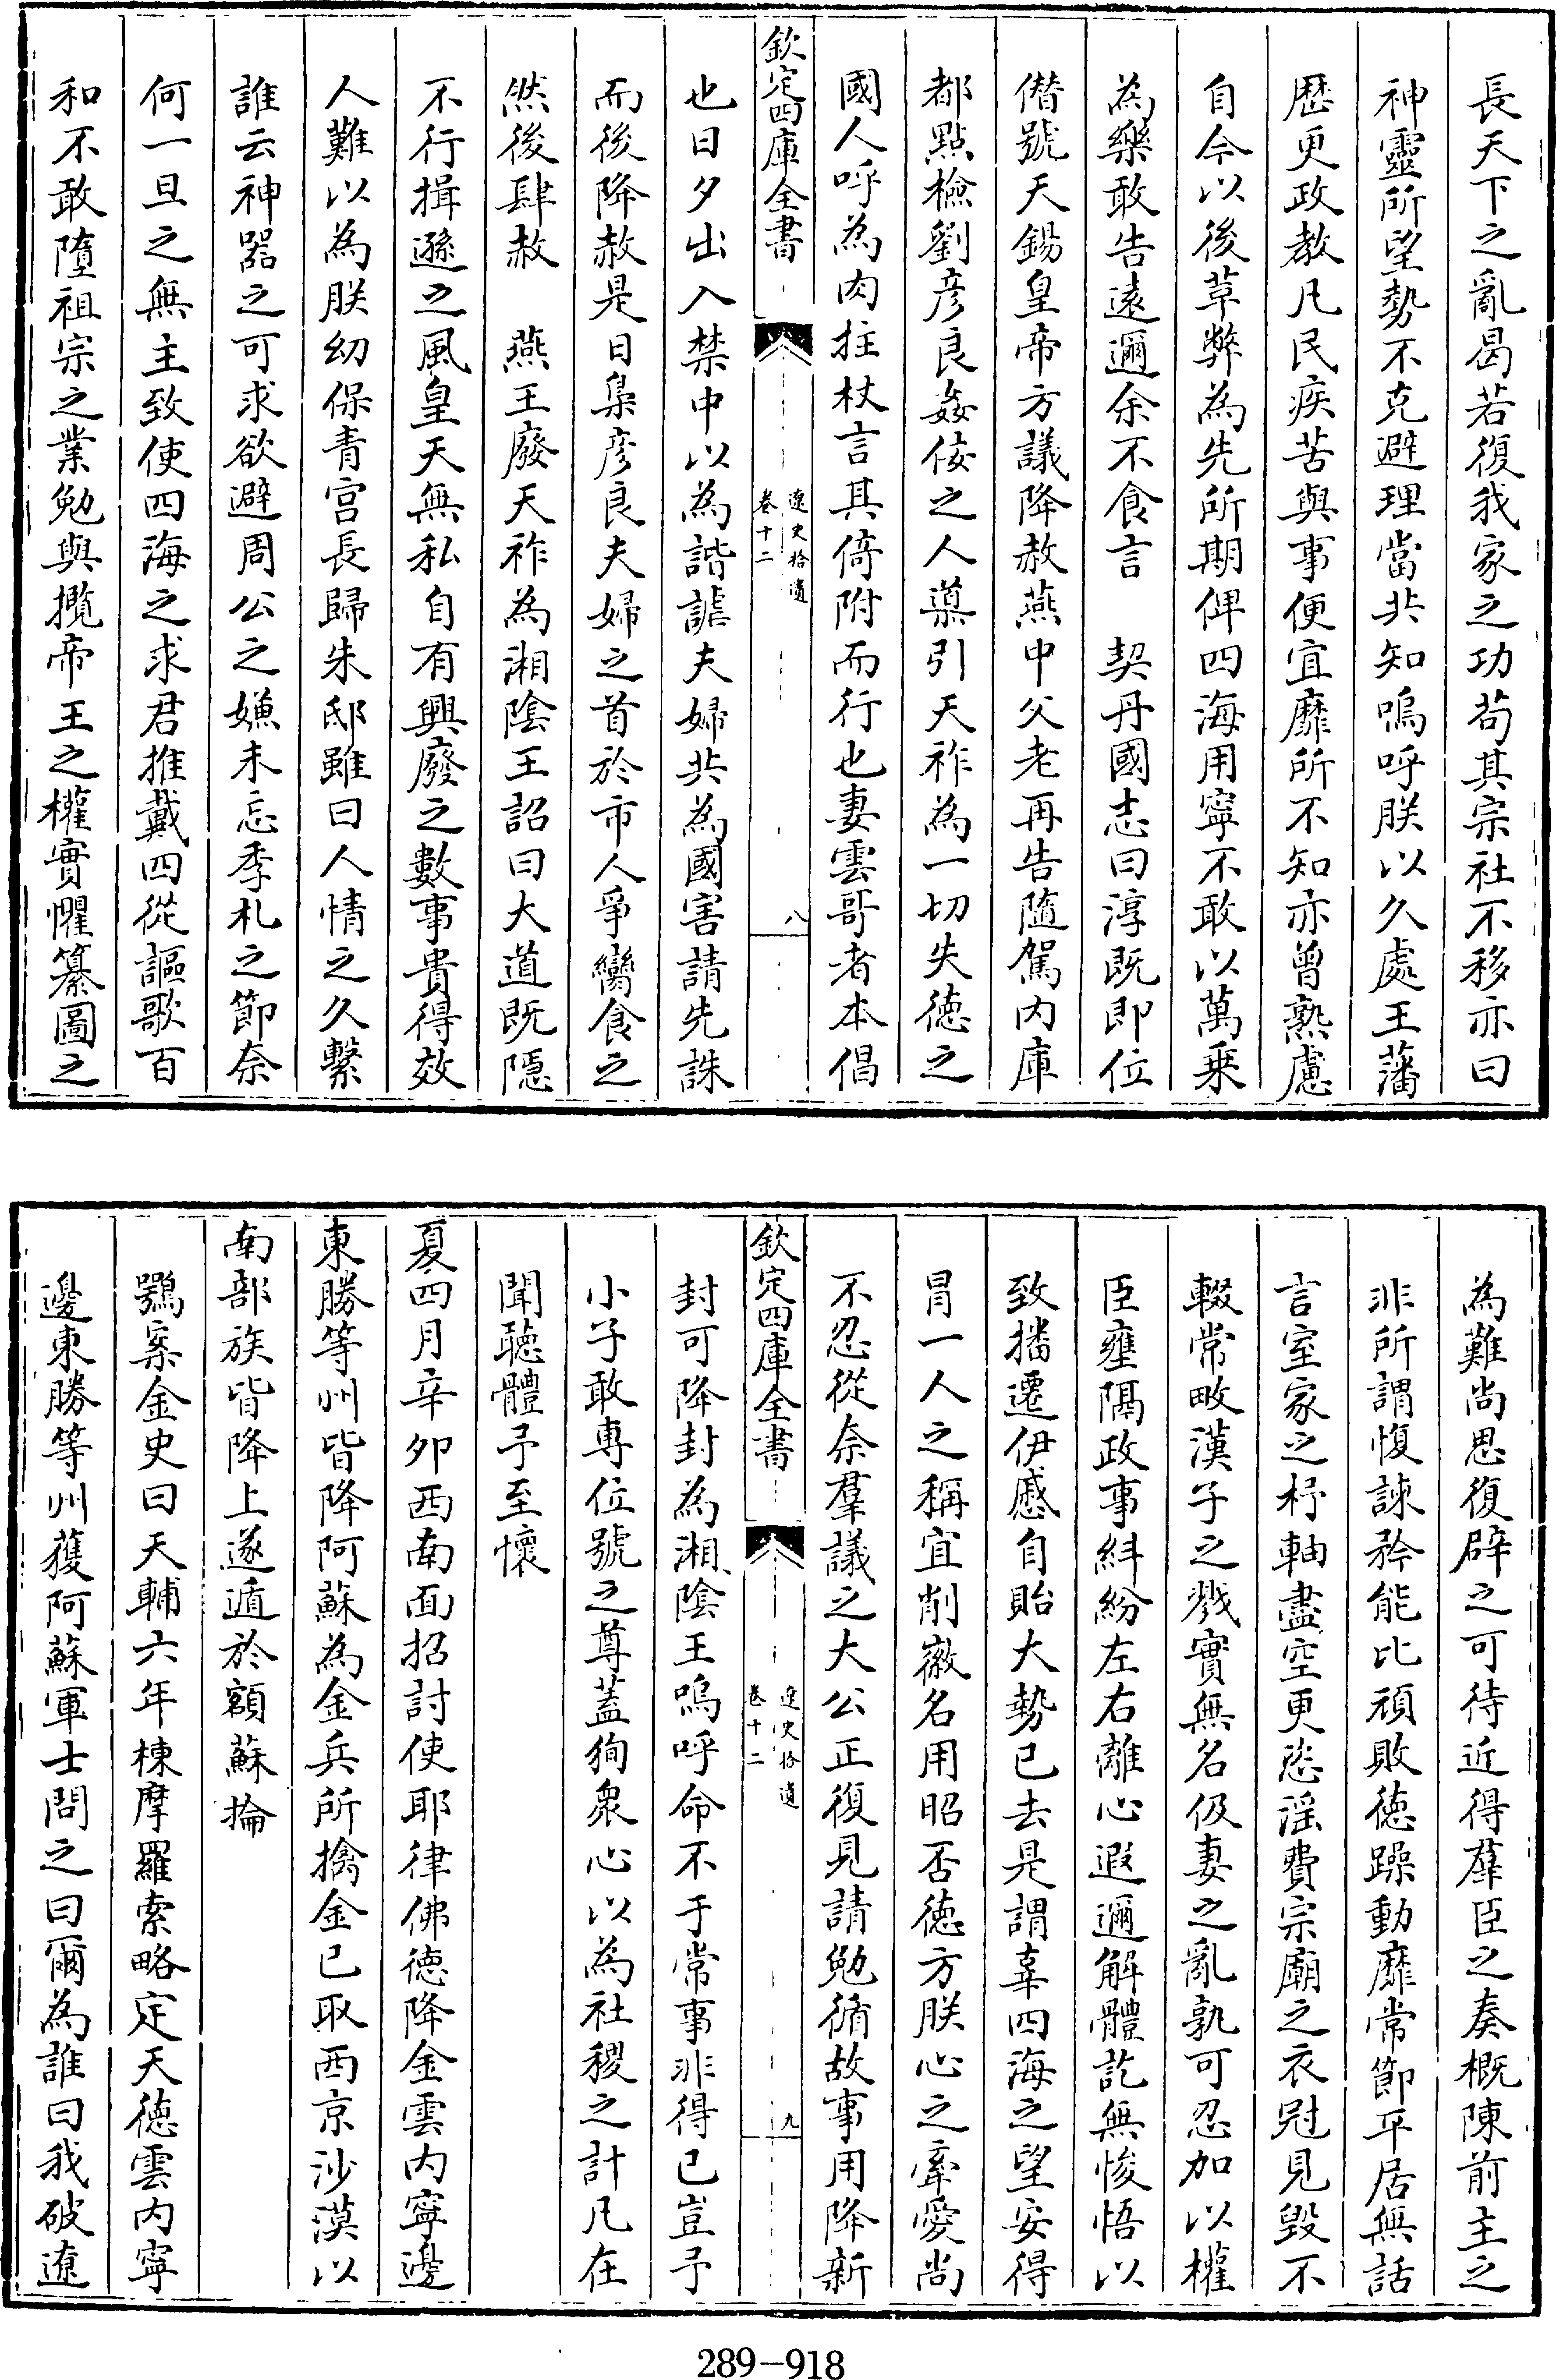 長天下之亂曷若復我家之功苟其宗社不移亦曰
神靈所望勢不克避理當共知嗚呼朕以久處王藩
歴更政教凡民疾苦與事便宜靡所不知亦曾熟慮
自今以後革弊為先所期俾四海用寧不敢以萬乗
為樂敢告遠邇余不食言　契丹國志曰淳既即位
僣號天錫皇帝方議降赦燕中父老再告隨駕内庫
都點檢劉彦良姦佞之人導引天祚為一切失徳之
國人呼為肉拄杖言其倚附而行也妻雲哥者本倡
欽定四庫全書
遼史拾遺
卷十二
八
也日夕出入禁中以為諧謔夫婦共為國害請先誅
而後降赦是日梟彦良夫婦之首於市人爭臠食之
然後肆赦　燕王廢天祚為湘陰王詔曰大道既隱
不行揖遜之風皇天無私自有興廢之數事貴得效
人難以為朕幼保青宫長歸朱邸雖曰人情之久繫
誰云神器之可求欲避周公之嫌未忘季札之節奈
何一旦之無主致使四海之求君推戴四從謳歌百
和不敢墮祖宗之業勉與攬帝王之權實懼纂圖之
為難尚思復辟之可待近得羣臣之奏概陳前主之
非所謂愎諫矜能比頑敗徳躁動靡常節平居無話
言室家之杼軸盡空更恣淫費宗廟之衣冠見毀不
輟常畋漢子之戮實無名伋妻之亂孰可忍加以權
臣壅隔政事糾紛左右離心遐邇解體訖無悛悟以
致播遷伊慼自貽大勢已去是謂辜四海之望安得
冒一人之稱宜削徽名用昭否徳方朕心之牽愛尚
不忍從奈羣議之大公正復見請勉循故事用降新
欽定四庫全書
遼史拾遺
卷十二
九
封可降封為湘陰王嗚呼命不于常事非得已豈予
小子敢專位號之尊蓋狥衆心以為社稷之計凡在
聞聴體予至懷
夏四月辛卯西南面招討使耶律佛徳降金雲内寧邊
東勝等州皆降阿蘇為金兵所擒金已取西京沙漠以
南部族皆降上遂遁於額蘇掄
鶚案金史曰天輔六年棟摩羅索略定天徳雲内寧
邊東勝等州獲阿蘇軍士問之曰爾為誰曰我破遼
289-918